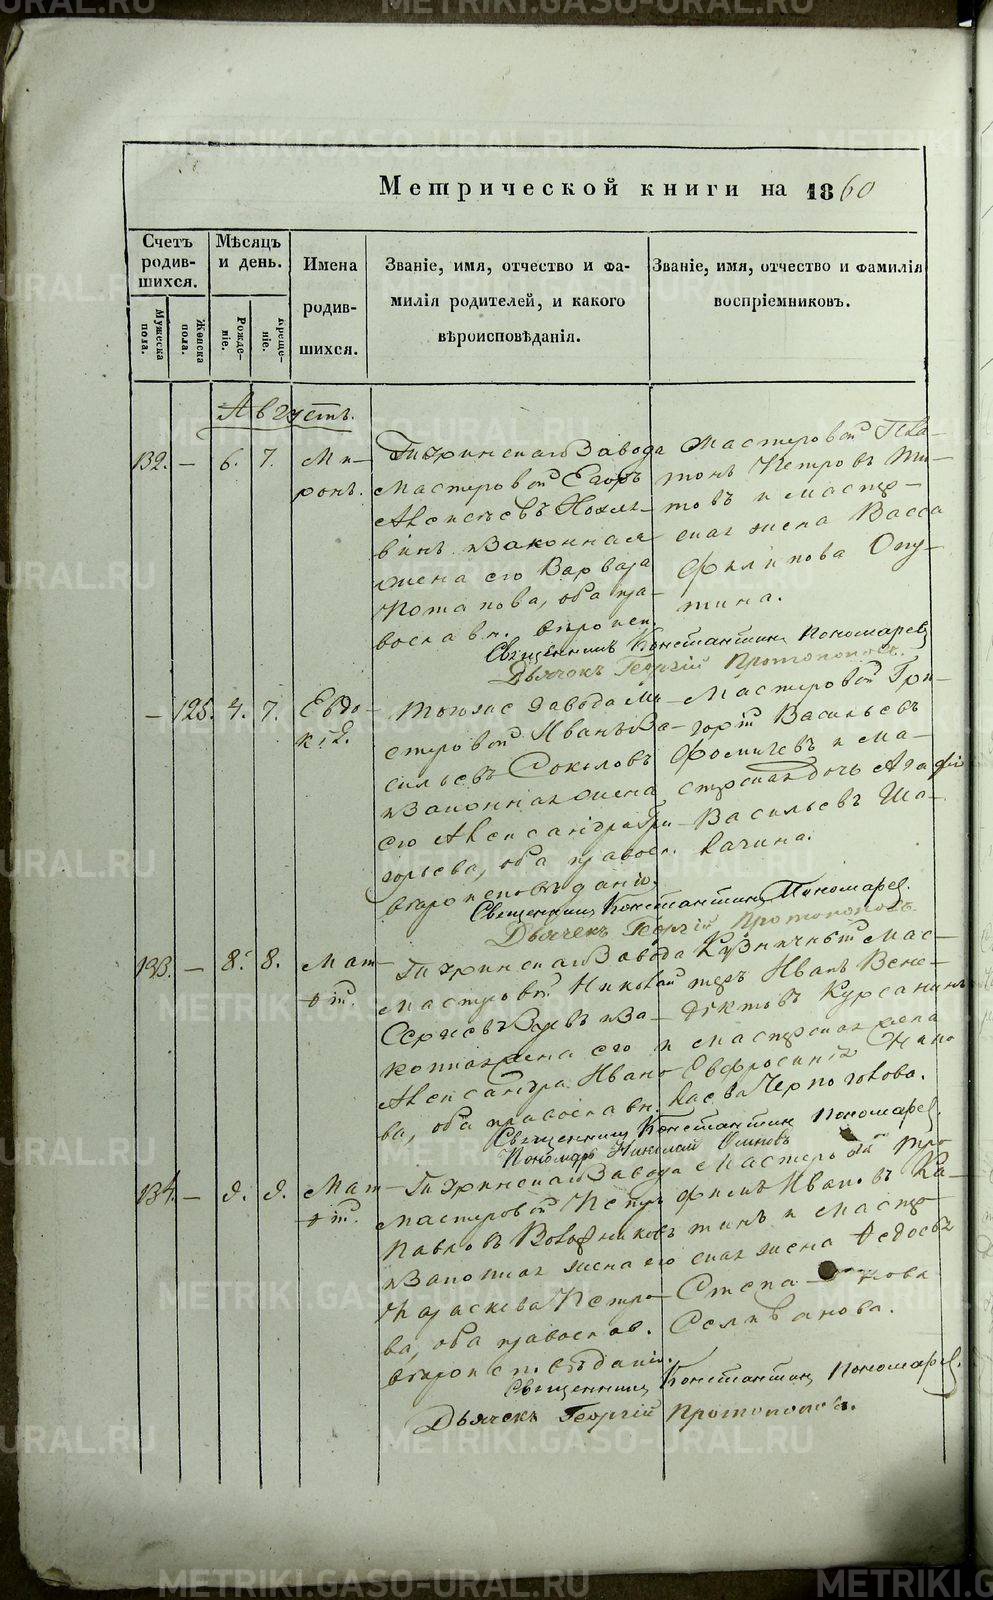 Метрической книги на 1860
Счетъ родив-шихся.
Мужеска пола.
Женска пола.
Мѣсяцъ и день.
Рожде-ніе.
Креще-ніе.
Имена
родив-
шихся.
Званіе, имя, отчество и фа-
милія родителей, и какого
вѣроисповѣданія.
Званіе, имя, отчество и фамилія
воспріемниковъ.
Августъ.
132. — 6. 7.
Ми-
ронъ.
Завода
Мастеровой Егоръ
Алексѣевъ
и законная
жена его Варвара
Потапова, оба пра-
вославн. вѣроисп.
Мастеровой Пла-
тонъ Петровъ Ти-
товъ и мастер-
ская жена Васса
Филипова Опу-
тина.
Священникъ Константинъ Пономаревъ
Дьячокъ Георгій Протопоповъ.
— 125. 4. 7.
Евдо-
кія.
Тогоже завода Ма-
стеровой Иванъ Ва-
сильевъ Соколовъ
и законная жена
его Александра Гри-
горьева, оба правосл.
вѣроисповѣданія.
Мастеровой Гри-
горій Васильевъ
Фомичевъ и ма-
стерская дочь Агафія
Васильевъ
Священникъ Константинъ Пономаревъ.
Дьячекъ Георгій Протопоповъ
133. — 8. 8.
Мат-
ѳій.
Завода
Мастеровой Николай
Сергѣевъ и за-
конная жена его
Александра Ивано-
ва, оба православн.
Кузничный мас-
теръ Иванъ Вене-
диктовъ Курсанинъ
и мастерская жена
Евфросинія Нико-
лаева Черноголова.
Священникъ Константинъ Пономаревъ.
Пономарь Николай
134. — 9. 9.
Мат-
ѳій.
Завода
Мастеровой Петръ
Павловъ
и законная жена его
Параскева Петро-
ва, оба православ.
вѣроисповѣданія.
Мастеровой Тро-
фимъ Ивановъ Ка-
тинъ и мастер-
ская жена Ѳедосья
Степа- нова
Селиванова.
Священникъ Константинъ Пономаревъ.
Дьячекъ Георгій Протопоповъ.
METRIKI.GASO-URAL.RU